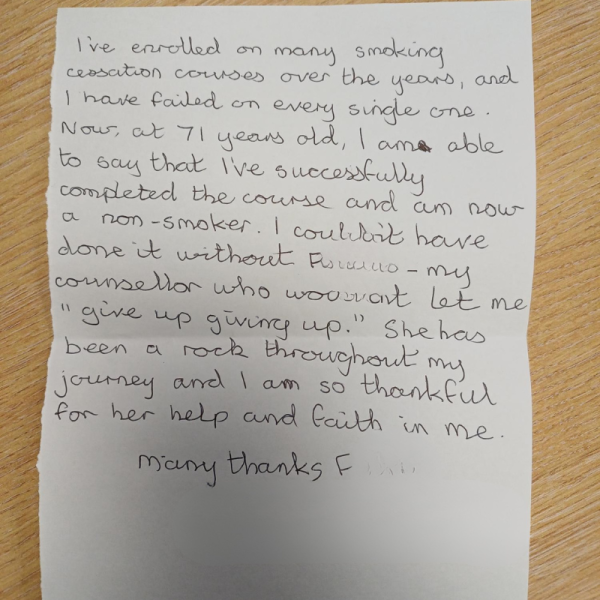 I've enrolled on many smoking
cessation courses over the years, and
I have failed on every single one.
Now, at 71 years old, I am able
to say that I've successfully
completed the course and am now
a non-smoker. I couldn't have
done it without - my
counsellor who wouldn't let me
"give up giving up." She has
been a rock throughout my
journey and I am so thankful
for her help and faith in me.
Many thanks F